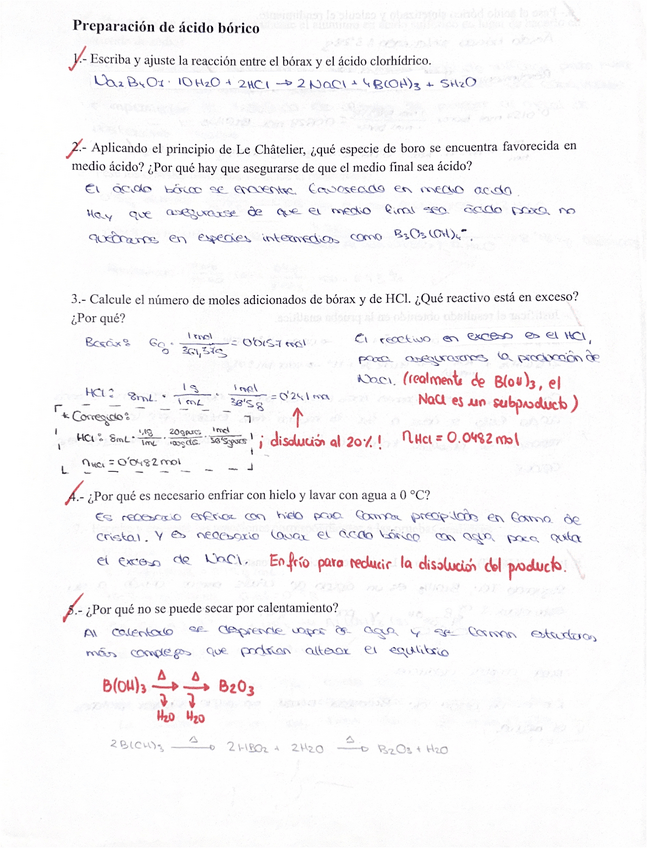 Preparación de ácido bórico
1.- Escriba y ajuste la reacción entre el bórax y el ácido clorhídrico.
Na2B4O7 · 10H2O + 2HCl → 2NaCl + 4B(OH)3 + 5H2O
2.- Aplicando el principio de Le Châtelier, ¿qué especie de boro se encuentra favorecida en
medio ácido? ¿Por qué hay que asegurarse de que el medio final sea ácido?
El ácido bórico se encuentra favoreado en medio acido.
Hay que asegurarse de que el medio final sea ácido para no
quedarnos en especies intermedias como B3O3(OH)4-.
3.- Calcule el número de moles adicionados de bórax y de HCl. ¿Qué reactivo está en exceso?
¿Por qué?
Borax: 6g · 1mol / 381,37g = 0'0157 mol
El reactivo en exceso es el HCl,
para asegurarnos la producción de
NaCl. (realmente de B(OH)3, el
NaCl es un subproducto)
HCl: 8mL · 1g / 1mL · 1mol / 38'5g = 0'241 mol
* Corregido:
HCl: 8mL · 1,1g / 1mL · 20g / 100g · 1mol / 36'5g
nHCl = 0'0482 mol
¡disolución al 20%! nHCl = 0.0482 mol
4.- ¿Por qué es necesario enfriar con hielo y lavar con agua a 0 °C?
Es necesario enfriar con hielo para formar precipitado en forma de
cristal. Y es necesario lavar el acido bórico con agua para quitar
el exceso de NaCl. En frío para reducir la disolución del producto.
5.- ¿Por qué no se puede secar por calentamiento?
Al calentarlo se desprende vapor de agua y se forman estructuras
más complejas que podrían alterar el equilibrio
B(OH)3 Δ→ Δ→ B2O3
H2O H2O
2B(OH)3 Δ→ 2HBO2 + 2H2O Δ→ B2O3 + H2O